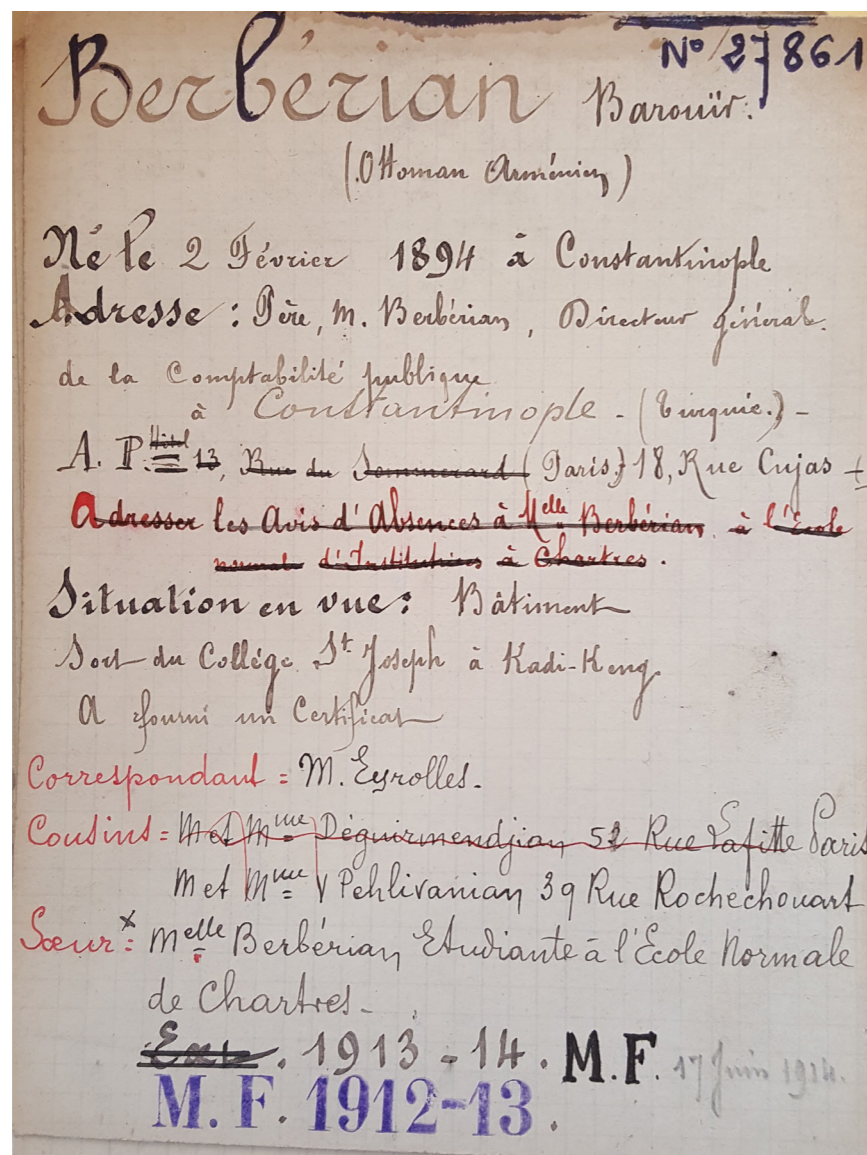 Nº 27861
Berbérian Barouïr.
(Ottoman Arménien)
Né le 2 Février 1894 à Constantinople
Adresse : Père, M. Berbérian, Directeur général.
de la Comptabilité publique
à Constantinople - (Turquie.) -
A. P. = Hôtel 13, Rue du Sommerard (Paris) 18, Rue Cujas
Adresser les Avis d'Absences à Melle Berbérian à l'École
normale d'Institutrices à Chartres.
Situation en vue : Bâtiment
Sort du Collège St Joseph à Kadi-Keuy.
A fourni un Certificat
Correspondant = M. Eyrolles.
Cousins = M et Mme Déguirmendjian 52 Rue Lafitte Paris
M et Mme Pehlivanian 39 Rue Rochechouart
Sœur x = Melle Berbérian Etudiante à l'École Normale
de Chartres.
Ext. 1913-14. M.F. 17 Juin 1914.
M. F. 1912-13.